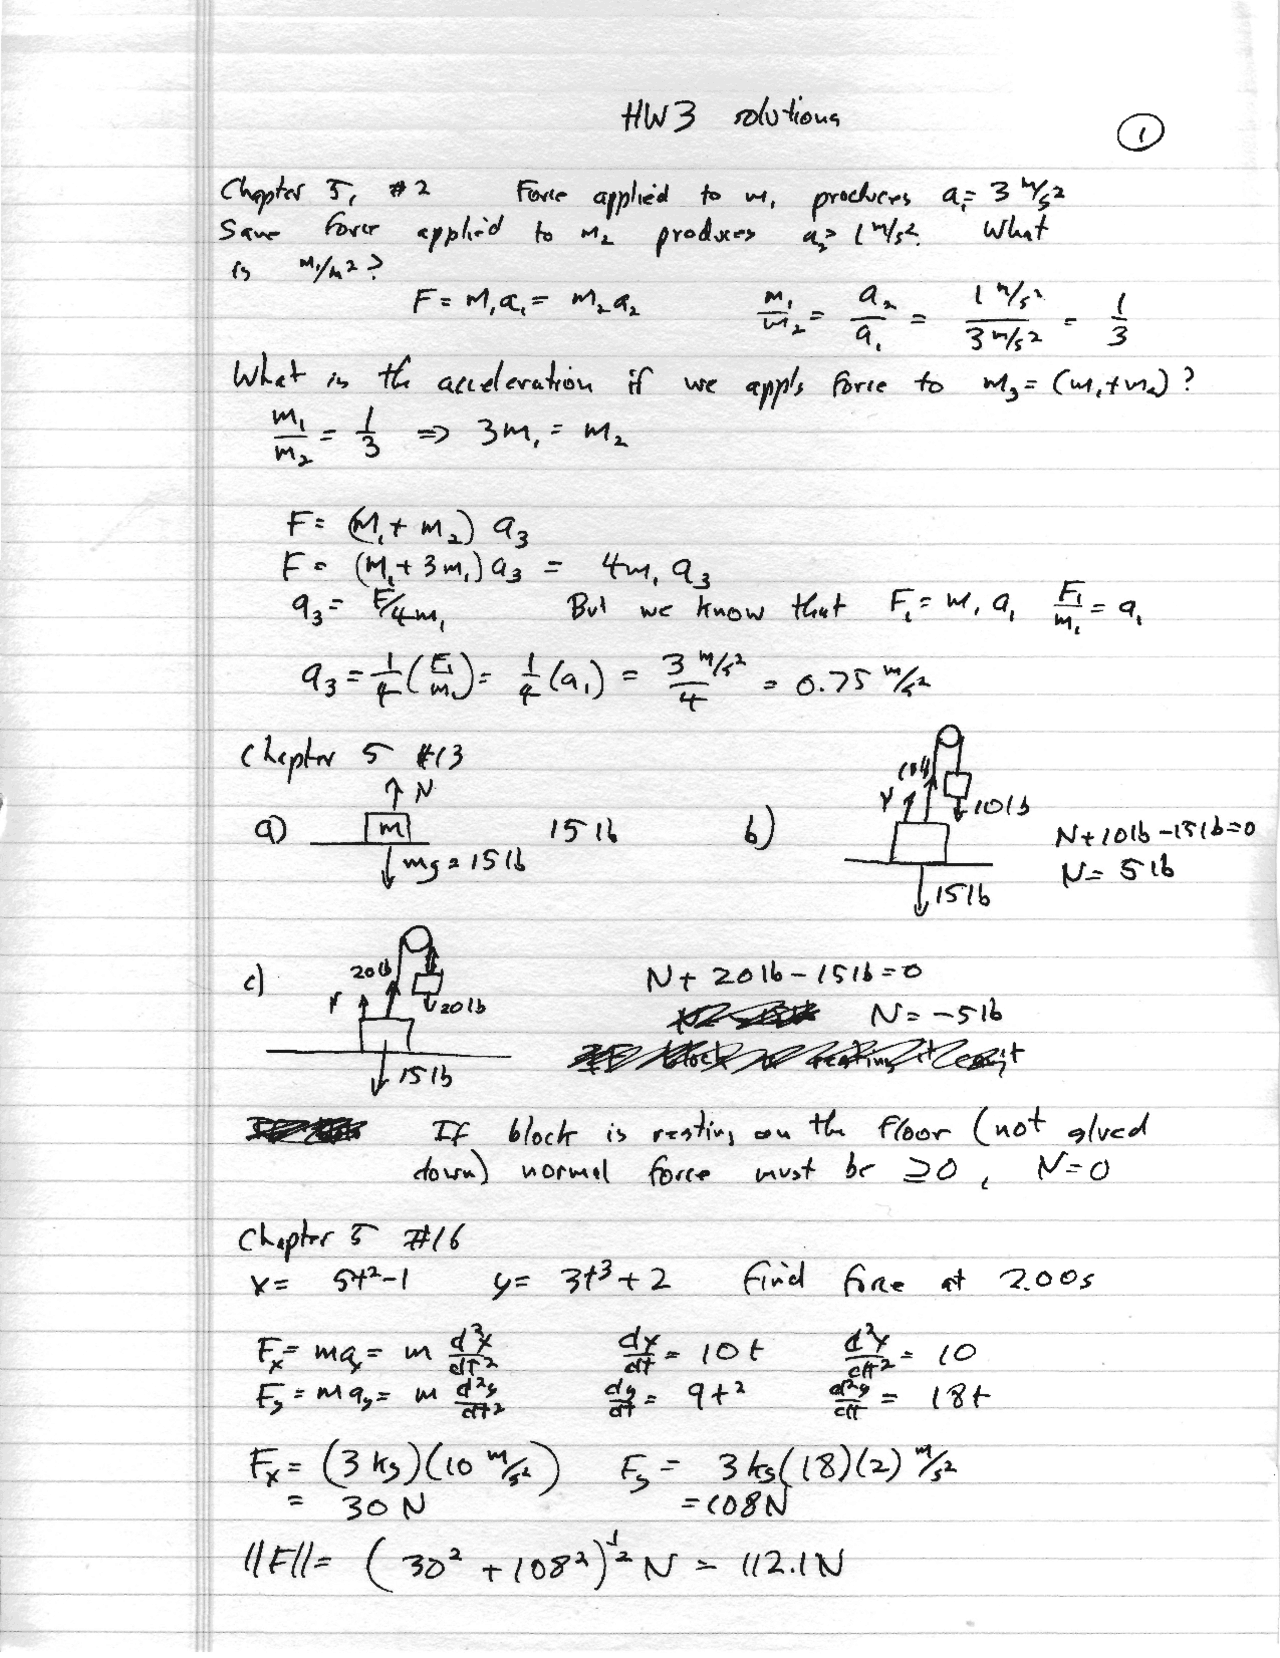 HW3 solutions
1
Chapter 5, #2 Force applied to m₁ produces a₁= 3 m/s²
Same force applied to m₂ produces a₂= 1 m/s². What
is m₁/m₂?
F = m₁a₁ = m₂a₂ m₁/m₂ = a₂/a₁ = 1 m/s² / 3 m/s² = 1/3
What is the acceleration if we apply force to m₃ = (m₁+m₂)?
m₁/m₂ = 1/3 ⇒ 3m₁ = m₂
F = (m₁ + m₂) a₃
F = (m₁ + 3m₁) a₃ = 4m₁ a₃
a₃ = F/4m₁ But we know that F₁ = m₁ a₁ F₁/m₁ = a₁
a₃ = 1/4 (F₁/m₁) = 1/4 (a₁) = 3 m/s² / 4 = 0.75 m/s²
Chapter 5 #13
a) N m mg = 15 lb 15 lb
b) N 10lb 10lb 15lb N + 10lb - 15lb = 0
N = 5 lb
c) 20lb N 20lb 15lb N + 20lb - 15lb = 0
N = -5lb
If block is resting on the floor (not glued
down) normal force must be ≥0, N=0
Chapter 5 #16
x = 5t²-1 y = 3t³+2 find force at 2.00s
Fx = max = m d²x/dt² dx/dt = 10t d²x/dt² = 10
Fy = may = m d²y/dt² dy/dt = 9t² d²y/dt = 18t
Fx = (3 kg)(10 m/s²) Fy = 3 kg(18)(2) m/s²
= 30 N = 108N
||F|| = (30² + 108²)^1/2 N = 112.1N